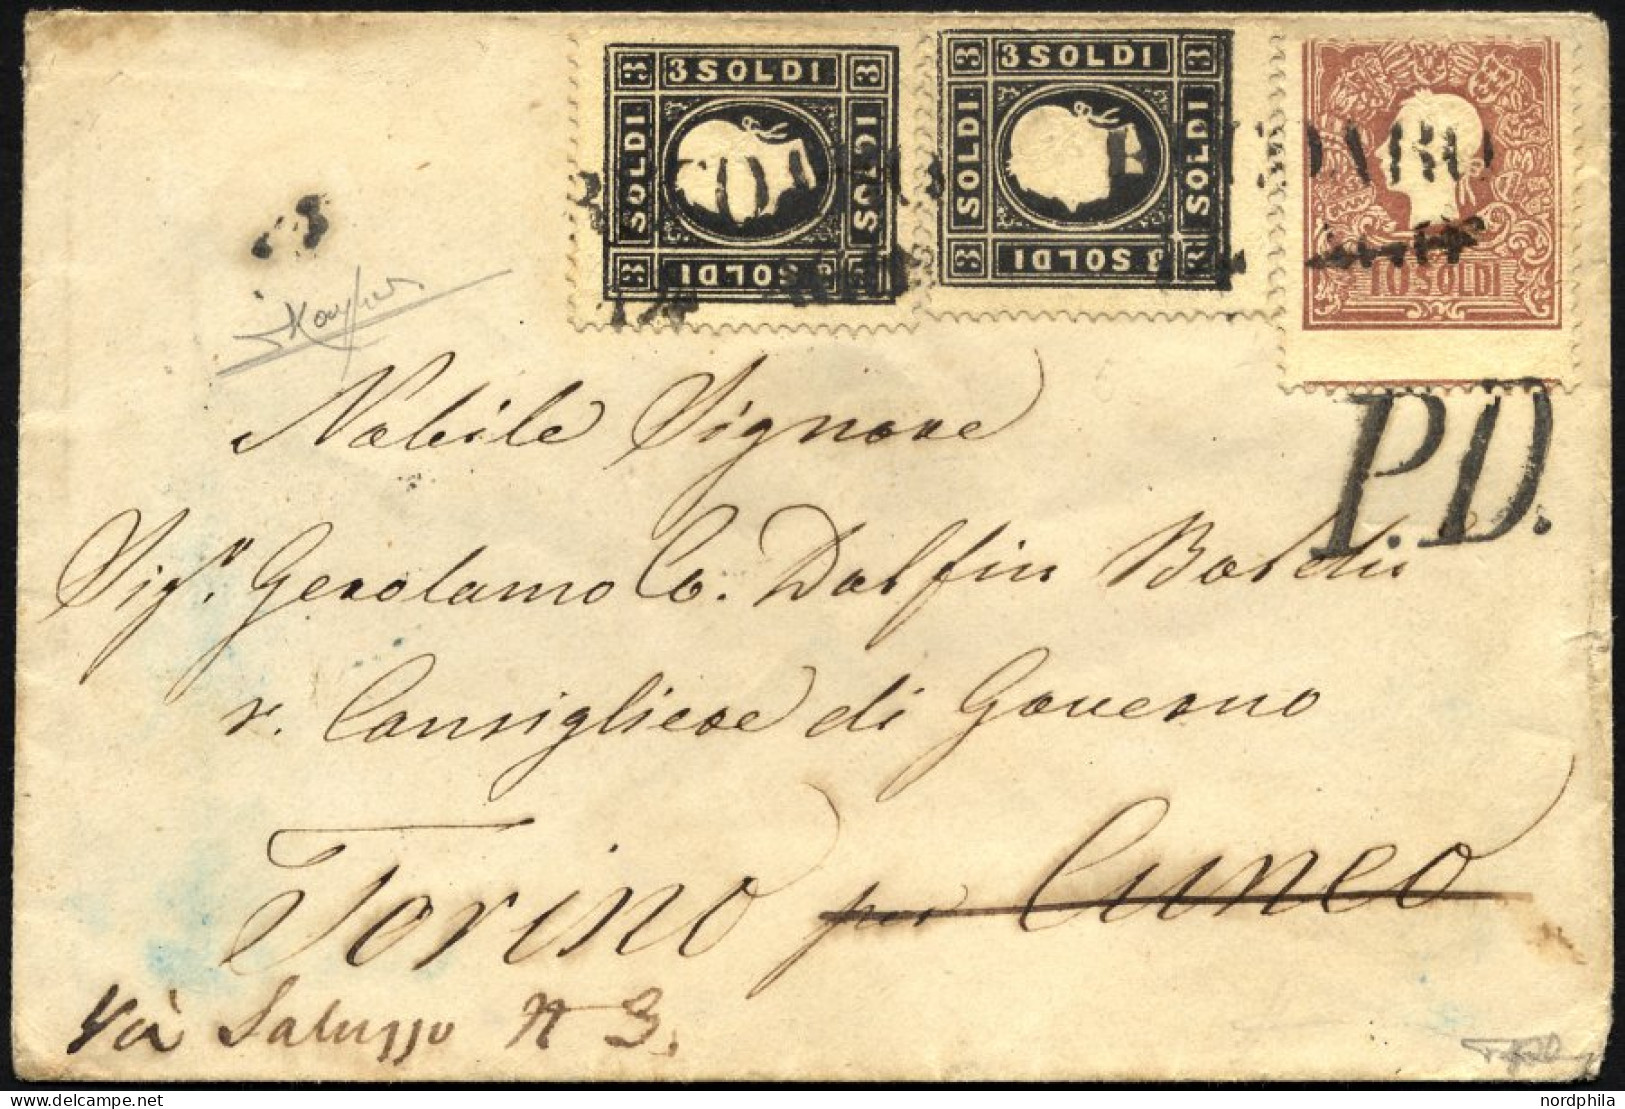 3 SOLDI 3
3 SOLDI
SOLDI
SOLDI
3 SOLDI
3 3 SOLDI 3
SOLDI
SOLDI
3 3 SOLDI
10 SOLDI
P.D.
Nobile Signore
Sigr. Gerolamo Co. Dolfin Boldù
r. Consigliere di Governo
Torino per Cuneo
Via Saluzzo N 3.
nordphila.com